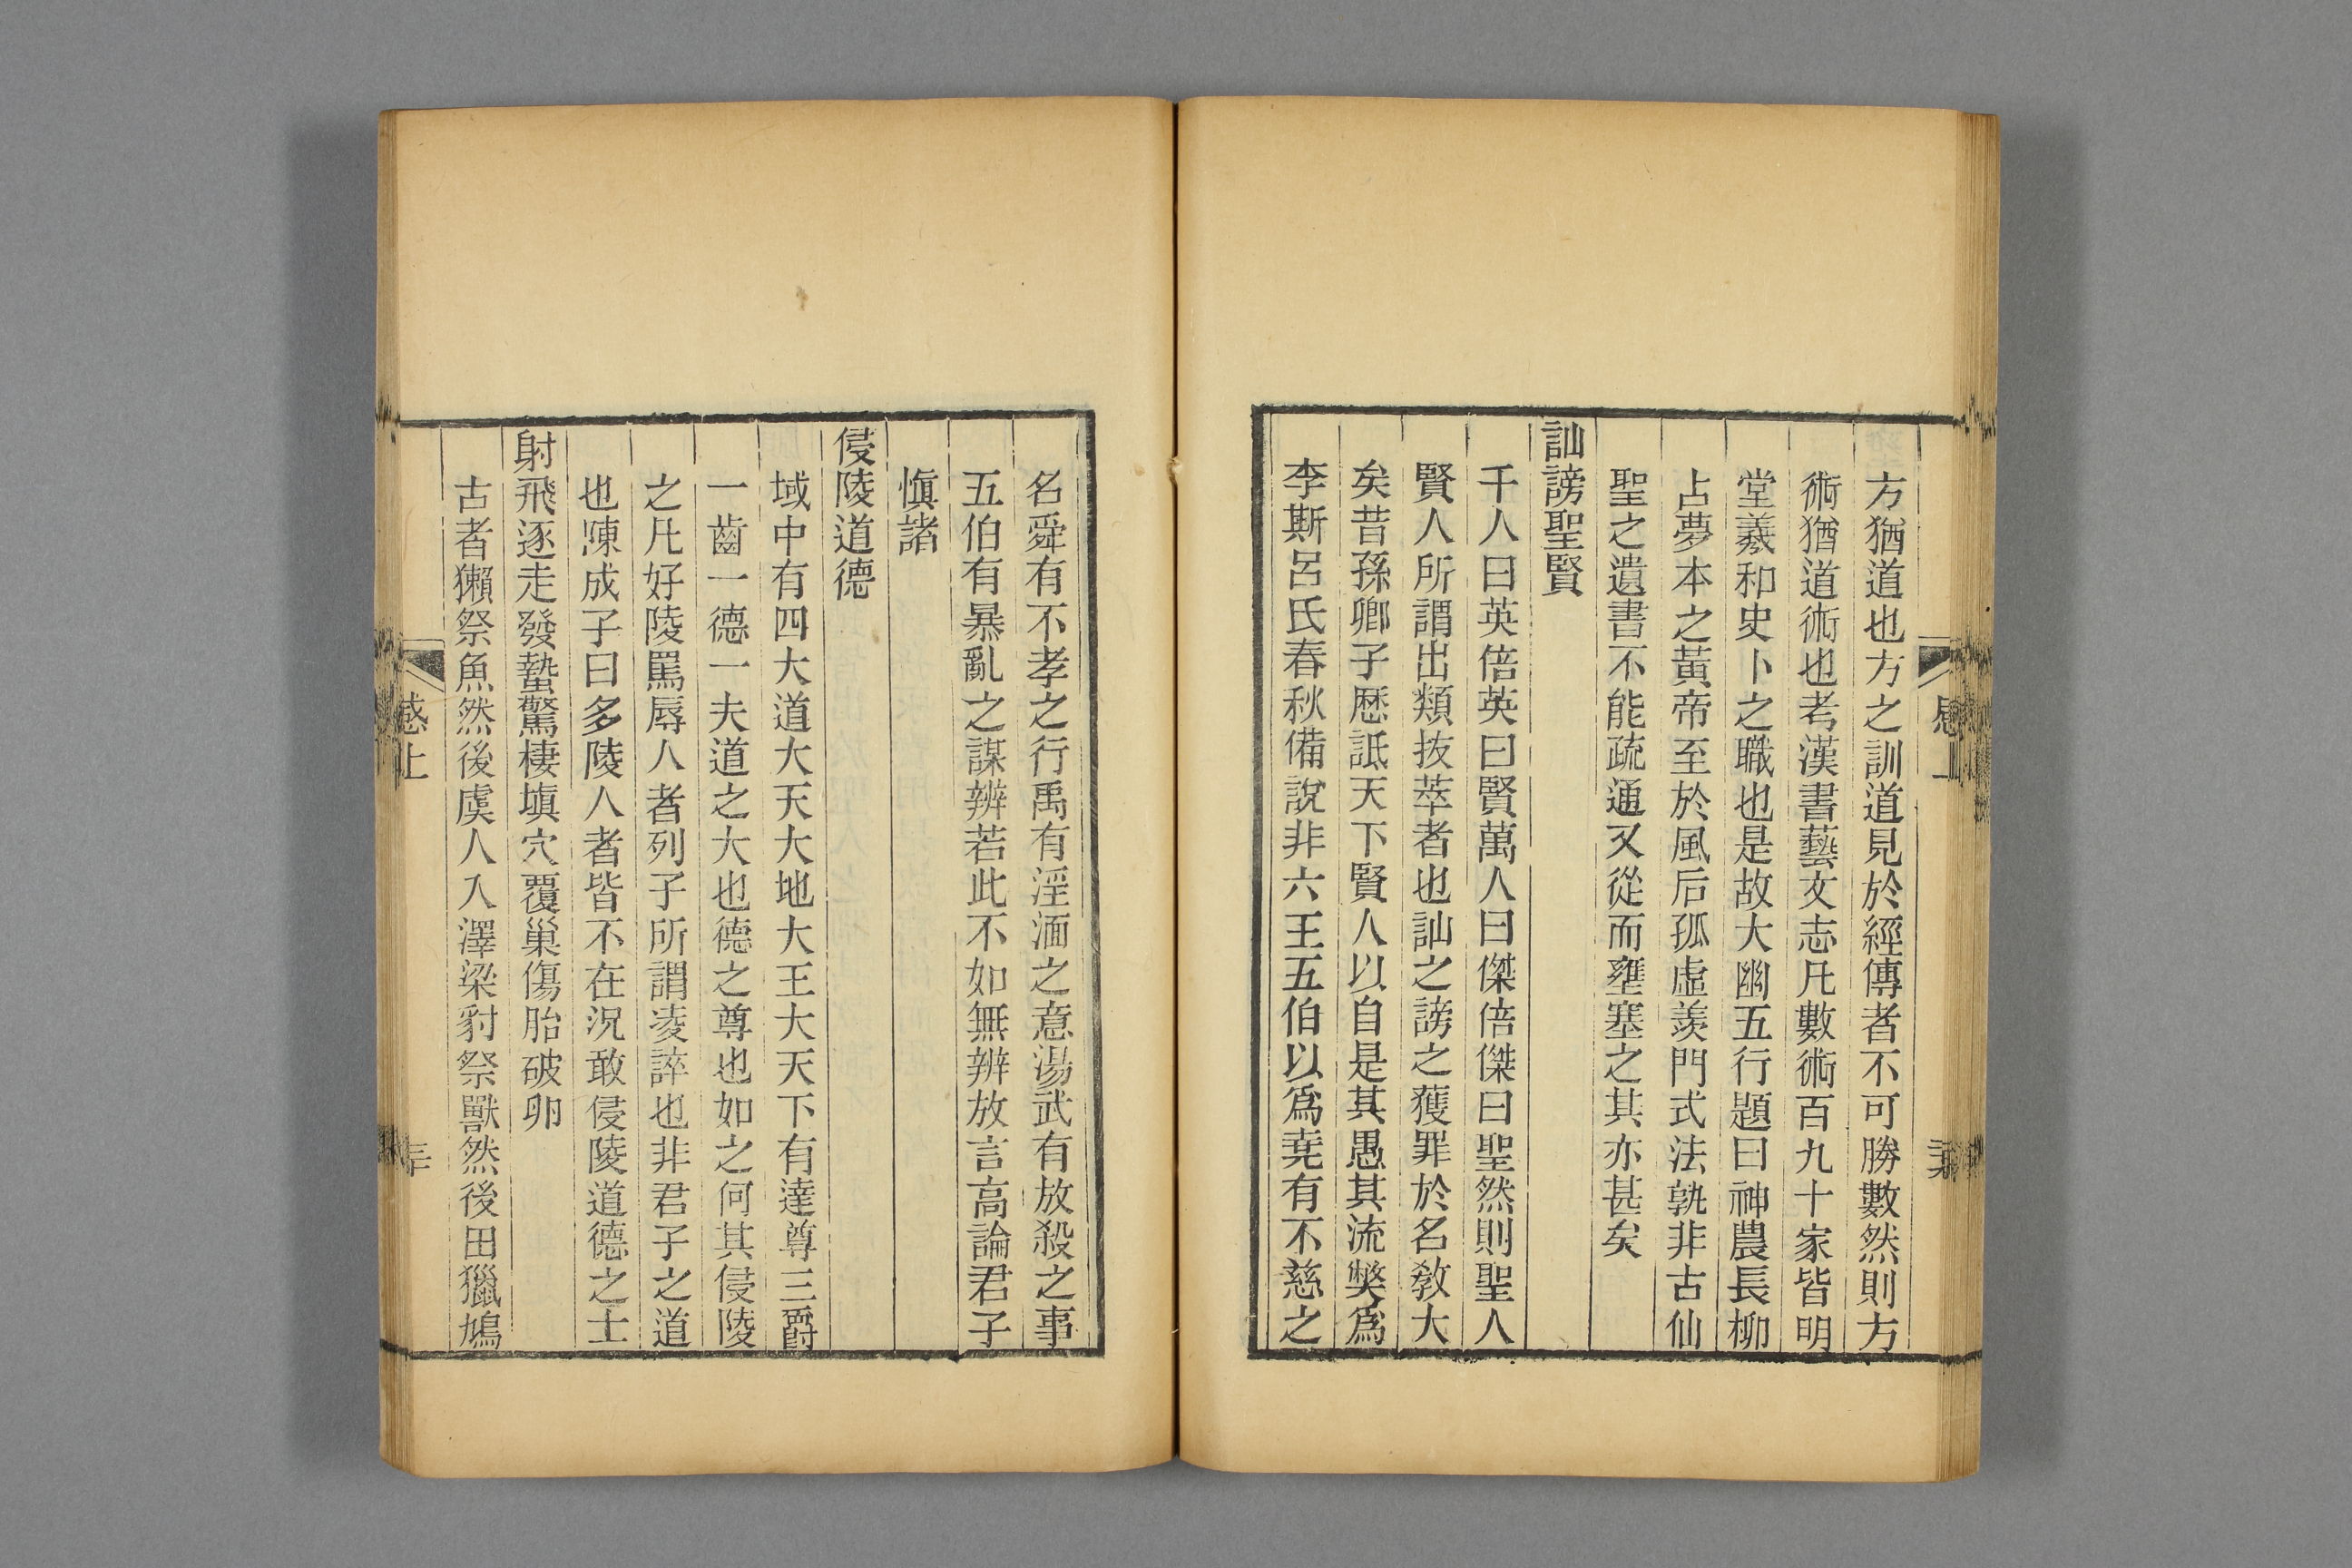 方猶道也方之訓道見於經傳者不可勝數然則方
術猶道術也考漢書藝文志凡數術百九十家皆明
堂羲和史卜之職也是故大幽五行題曰神農長柳
占夢本之黃帝至於風后孤虛羨門式法孰非古仙
聖之遺書不能疏通又從而壅塞之其亦甚矣
訕謗聖賢
千人曰英倍英曰賢萬人曰傑倍傑曰聖然則聖人
賢人所謂出類拔萃者也訕之謗之獲罪於名敎大
矣昔孫卿子歷詆天下賢人以自是其愚其流獘爲
李斯呂氏春秋備說非六王五伯以爲堯有不慈之
名舜有不孝之行禹有淫湎之意湯武有放殺之事
五伯有暴亂之謀辨若此不如無辨放言高論君子
愼諸
侵陵道德
域中有四大道大天大地大王大天下有達尊三爵
一齒一德一夫道之大也德之尊也如之何其侵陵
之凡好陵罵辱人者列子所謂凌誶也非君子之道
也陳成子曰多陵人者皆不在況敢侵陵道德之士
射飛逐走發蟄驚棲塡穴覆巢傷胎破卵
古者獺祭魚然後虞人入澤梁豺祭獸然後田獵鳩
感上